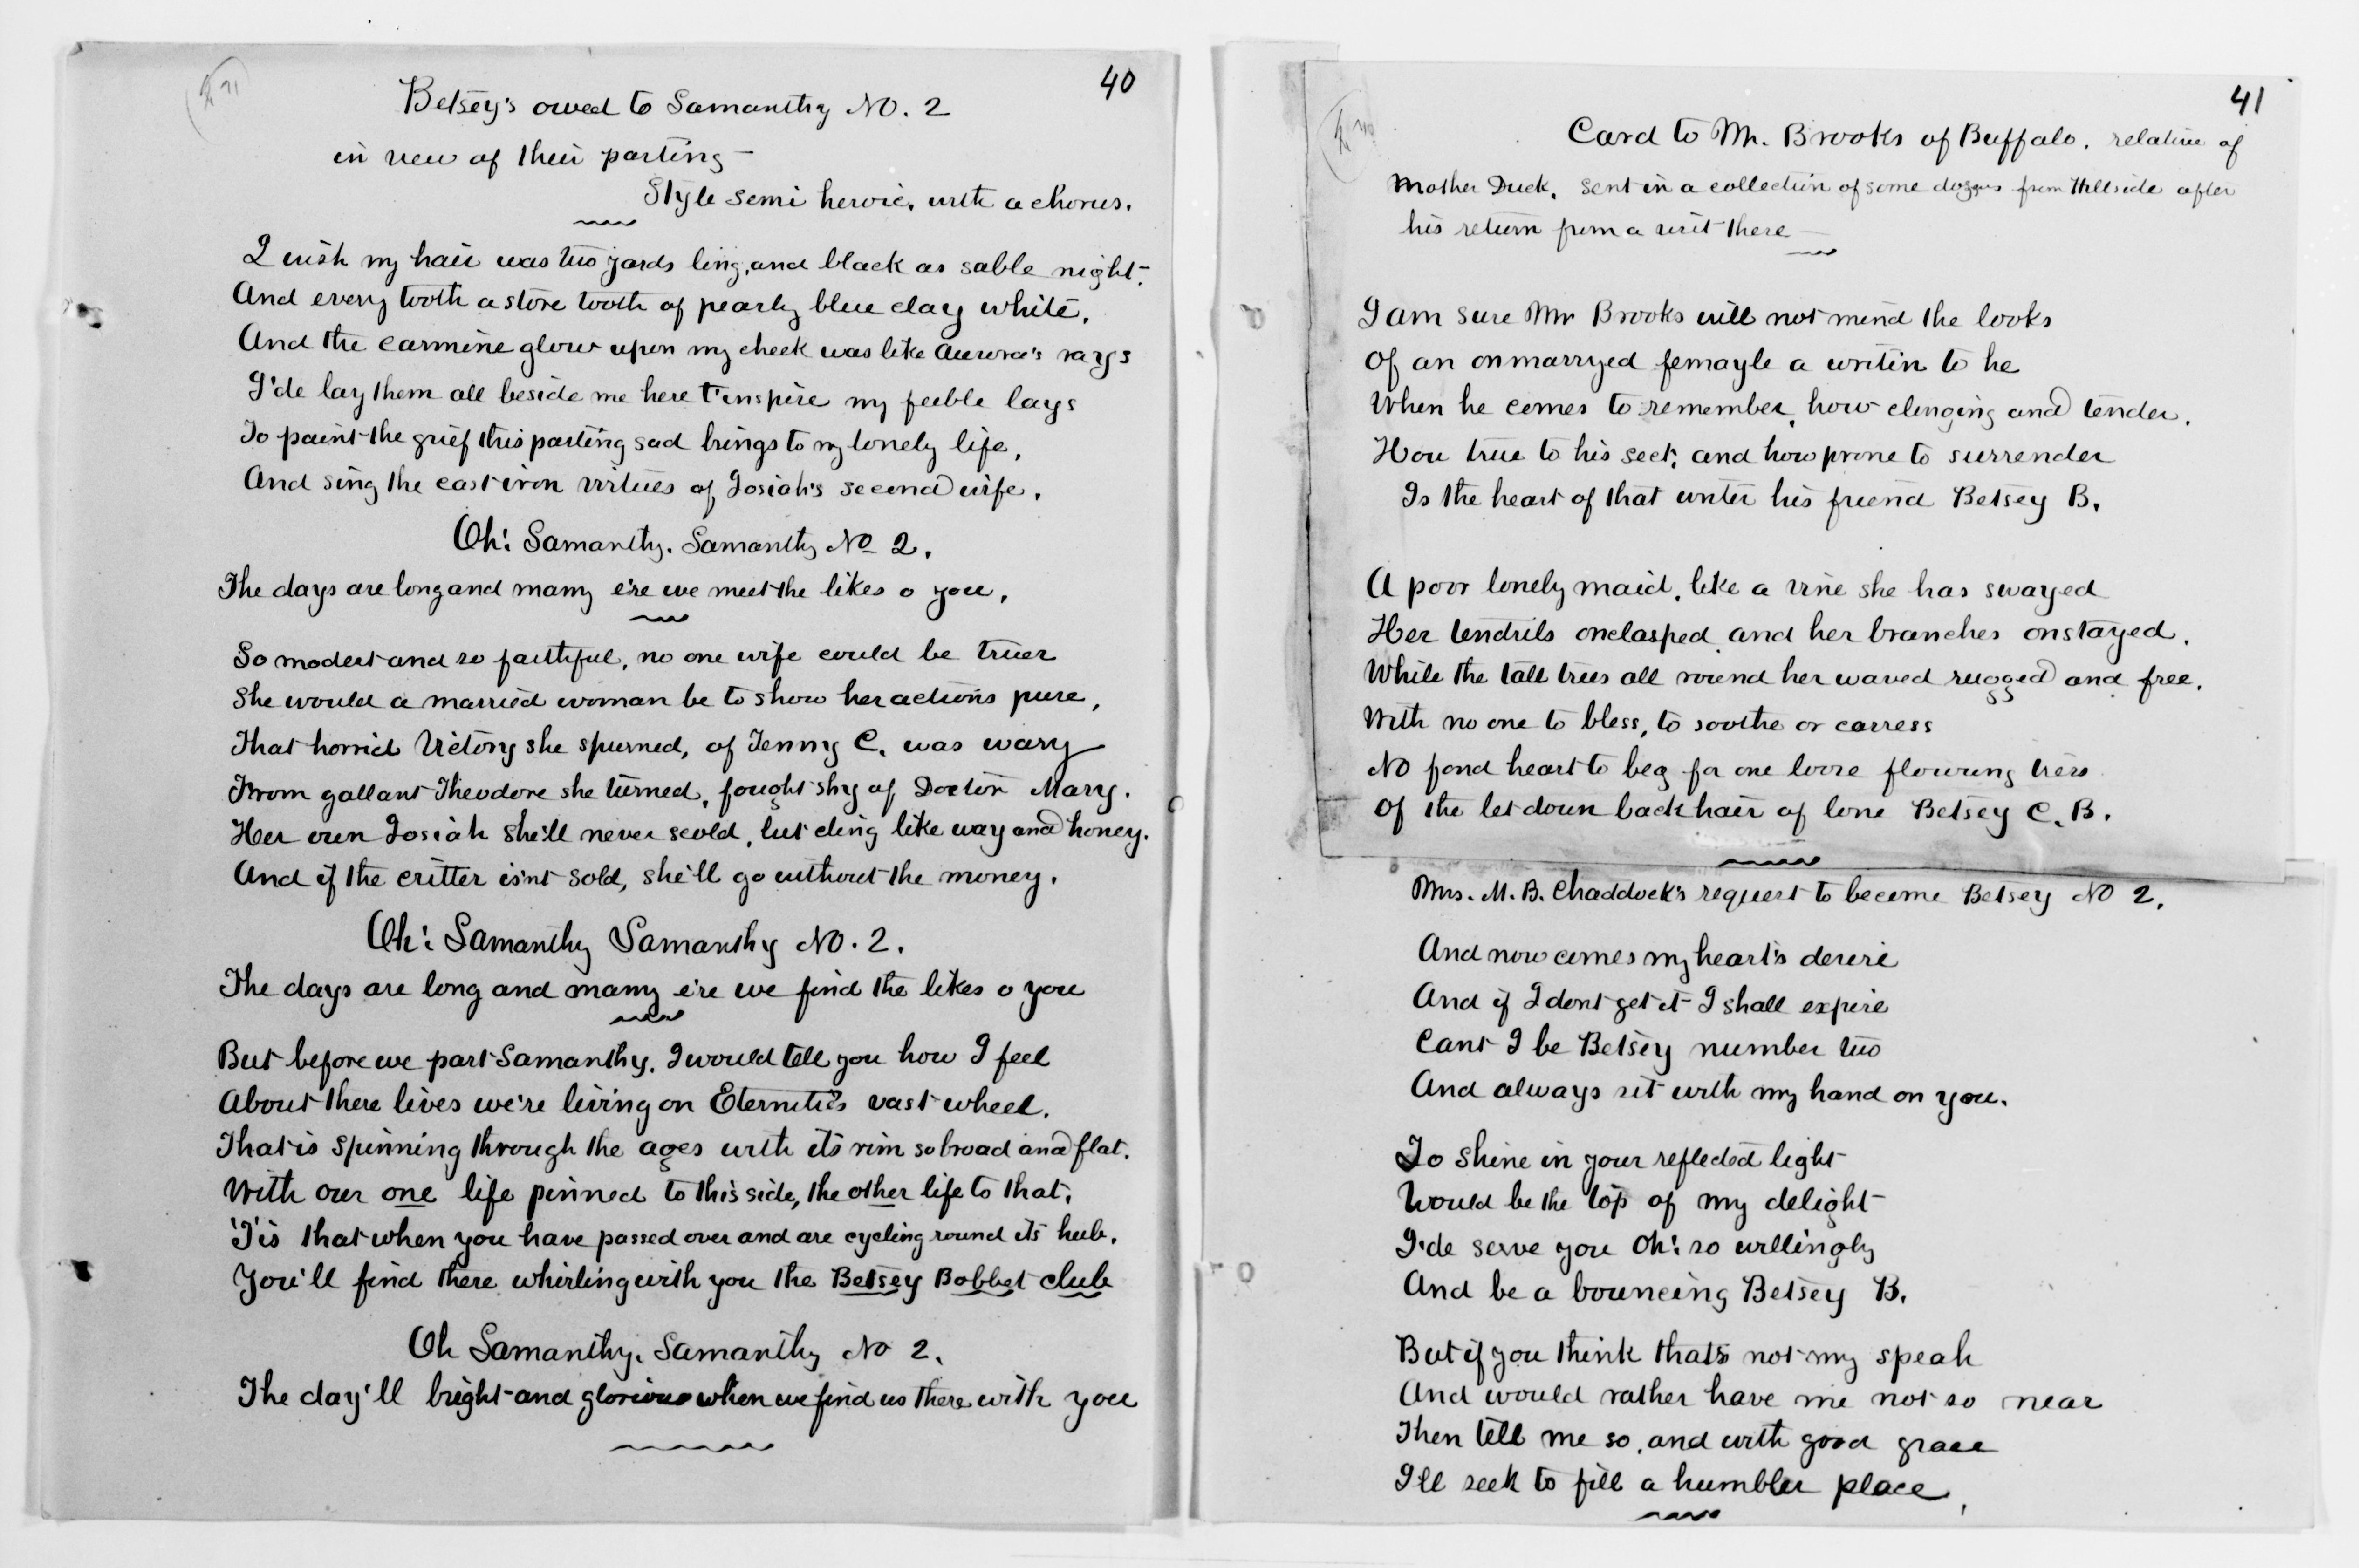 40
Betsey's owed to Samanthy NO. 2
in view of their parting —
Style semi heroic, with a chorus.
I wish my hair was two yards long, and black as sable night.
And every tooth a store tooth of pearly blue clay white,
And the carmine glow upon my cheek was like Aurora's rays
I'de lay them all beside me here t'inspire my feeble lays
To paint the grief this parting sad brings to my lonely life,
And sing the cast iron virtues of Josiah's second wife.
Oh! Samanthy. Samanthy No 2.
The days are long and many e're we meet the likes o you.
So modest and so faithful, no one wife could be truer
She would a married woman be to show her actions pure,
That horrid Victory she spurned, of Jenny C. was wary
From gallant Theodore she turned, fought shy of Doctor Mary.
Her own Josiah she'll never scold, but cling like way and honey.
And if the critter is'nt sold, she'll go without the money.
Oh! Samanthy Samanthy NO. 2.
The days are long and many e're we find the likes o you
But before we part Samanthy, I would tell you how I feel
About there lives we're living on Eternity's vast wheel.
That is spinning through the ages with its rim so broad and flat.
With our one life pinned to this side, the other life to that.
'Tis that when you have passed over and are cycling round its hub,
You'll find there whirling with you the Betsey Bobbet club
Oh Samanthy. Samanthy No 2.
The day'll bright and glorious when we find us there with you
41
Card to Mr. Brooks of Buffalo. relative of
Mother Duck. sent in a collection of some from Hillside after
his return from a visit there —
I am sure Mr Brooks will not mind the looks
Of an onmarryed femayle a writin to he
When he comes to remember, how clinging and tender.
How true to his sect, and how prone to surrender
Is the heart of that writer his friend Betsey B.
A poor lonely maid, like a vine she has swayed
Her tendrils onclasped, and her branches onstayed.
While the tall trees all round her waved rugged and free.
With no one to bless, to soothe or carress
No fond heart to beg for one loose flowing tress
Of the let down back hair of lone Betsey C. B.
Mrs. M. B. Chaddock's request to become Betsey NO 2.
And now comes my heart's desire
And if I dont get it I shall expire
Cant I be Betsey number two
And always sit with my hand on you.
To shine in your reflected light
Would be the top of my delight
I'de serve you Oh! so willingly
And be a bouncing Betsey B.
But if you think that's not my speah
And would rather have me not so near
Then tell me so, and with good grace
I'll seek to fill a humbler place.